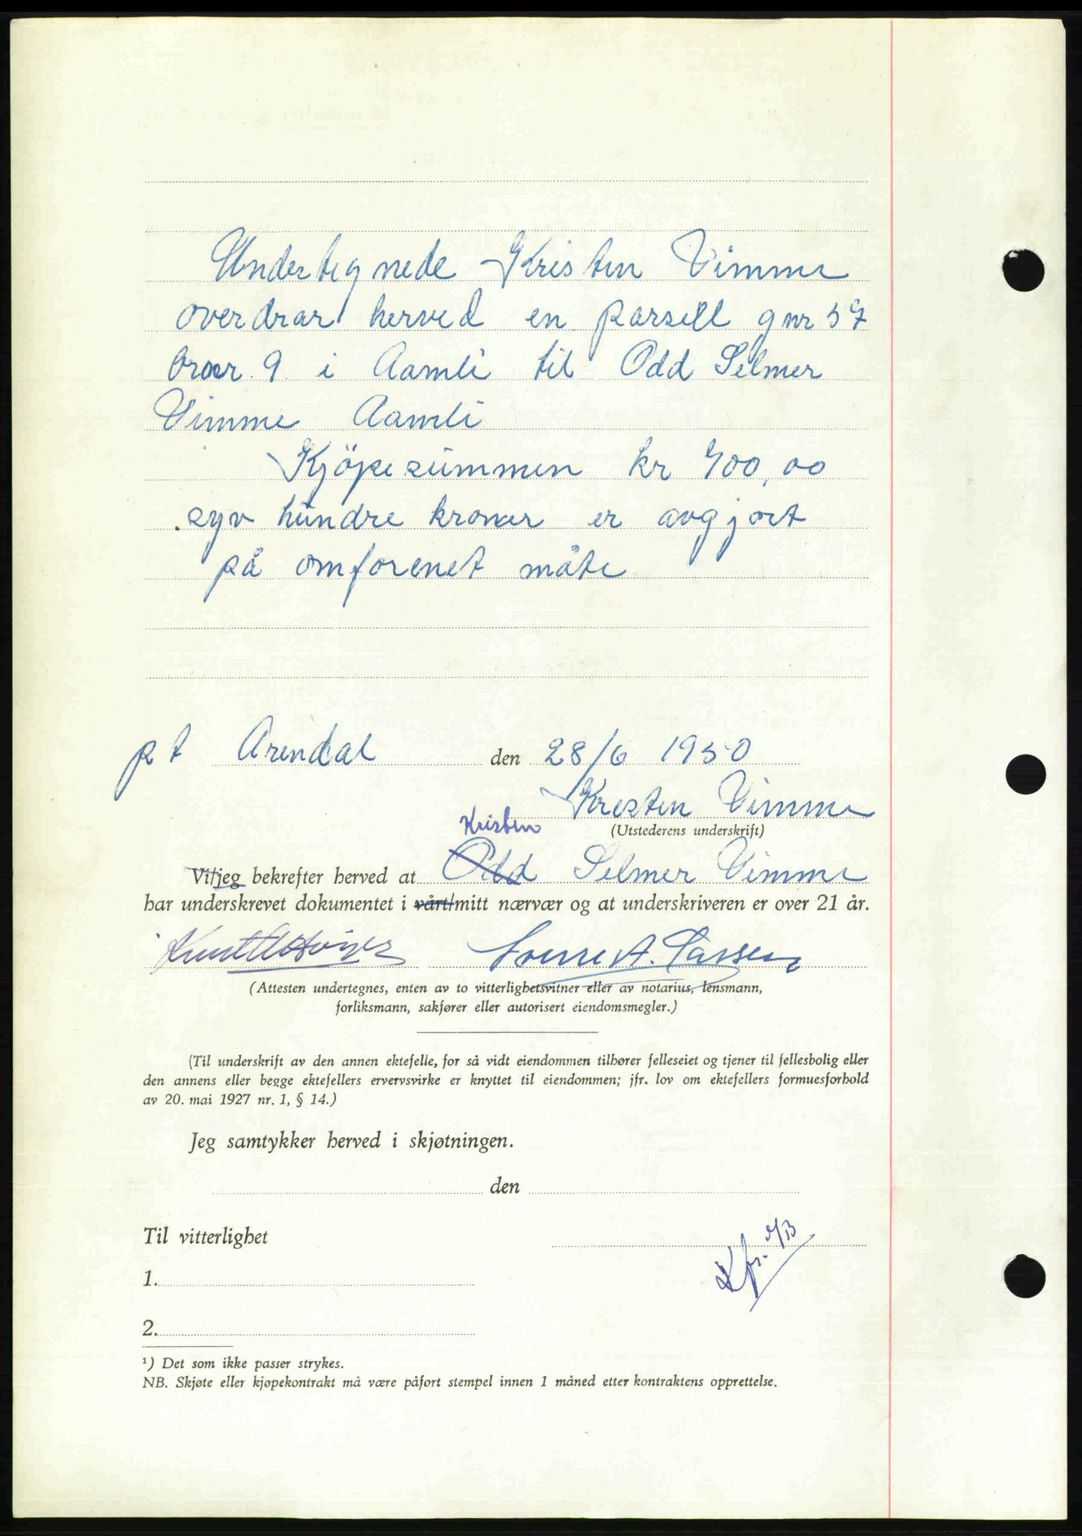 Undertegnede Kristen Vimme
overdrar herved en parsell gnr 37
brnr. 9 i Aamli til Odd Selmer
Vimme Aamli
Kjöpesummen kr 700,00
syv hundre kroner er avgjort
på omforenet måte
p t Arendal den 28/6 1950
Kristen Vimme
(Utstederens underskrift)
Kristen
Vi/jeg bekrefter herved at Odd Selmer Vimme
har underskrevet dokumentet i vårt/mitt nærvær og at underskriveren er over 21 år.
Knut
(Attesten undertegnes, enten av to vitterlighetsvitner eller av notarius, lensmann,
forliksmann, sakfører eller autorisert eiendomsmegler.)
(Til underskrift av den annen ektefelle, for så vidt eiendommen tilhører felleseiet og tjener til fellesbolig eller
den annens eller begge ektefellers ervervsvirke er knyttet til eiendommen; jfr. lov om ektefellers formuesforhold
av 20. mai 1927 nr. 1, § 14.)
Jeg samtykker herved i skjøtningen.
den
Til vitterlighet
1.
2.
¹) Det som ikke passer strykes.
NB. Skjøte eller kjøpekontrakt må være påført stempel innen 1 måned etter kontraktens opprettelse.